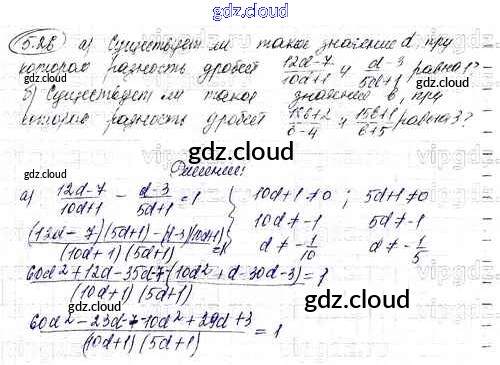 gdz.cloud
5.28 а) Существует ли такое значение d, при
котором разность дробей 12d-7/10d+1 и d-3/5d+1 равна 1?
б) Существует ли такое значение в, при
котором разность дробей и 15в+1/в+5 равна 3?
gdz.cloud
Решение:
а) 12d-7/10d+1 - d-3/5d+1 = 1 { 10d+1≠0 ; 5d+1≠0
(12d-7)(5d+1)-(d-3)(10d+1)/(10d+1)(5d+1) = 1 10d≠-1 5d≠-1
d≠-1/10 d≠-1/5
60d²+12d-35d-7-(10d²+d-30d-3)/(10d+1)(5d+1) = 1
gdz.cloud
60d²-23d-7-10d²+29d+3/(10d+1)(5d+1) = 1
gdz.cloud